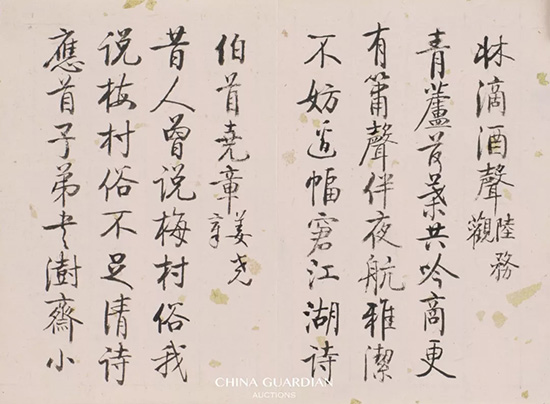 牀滴酒聲 陸務觀
青蘆首葉共吟商更
有簫聲伴夜航雅潔
不妨邊幅窘江湖詩
伯首堯章 姜堯章
昔人曾说梅村俗我
说梅村俗不足清詩
應首子弟 澍齋小
CHINA GUARDIAN
AUCTIONS